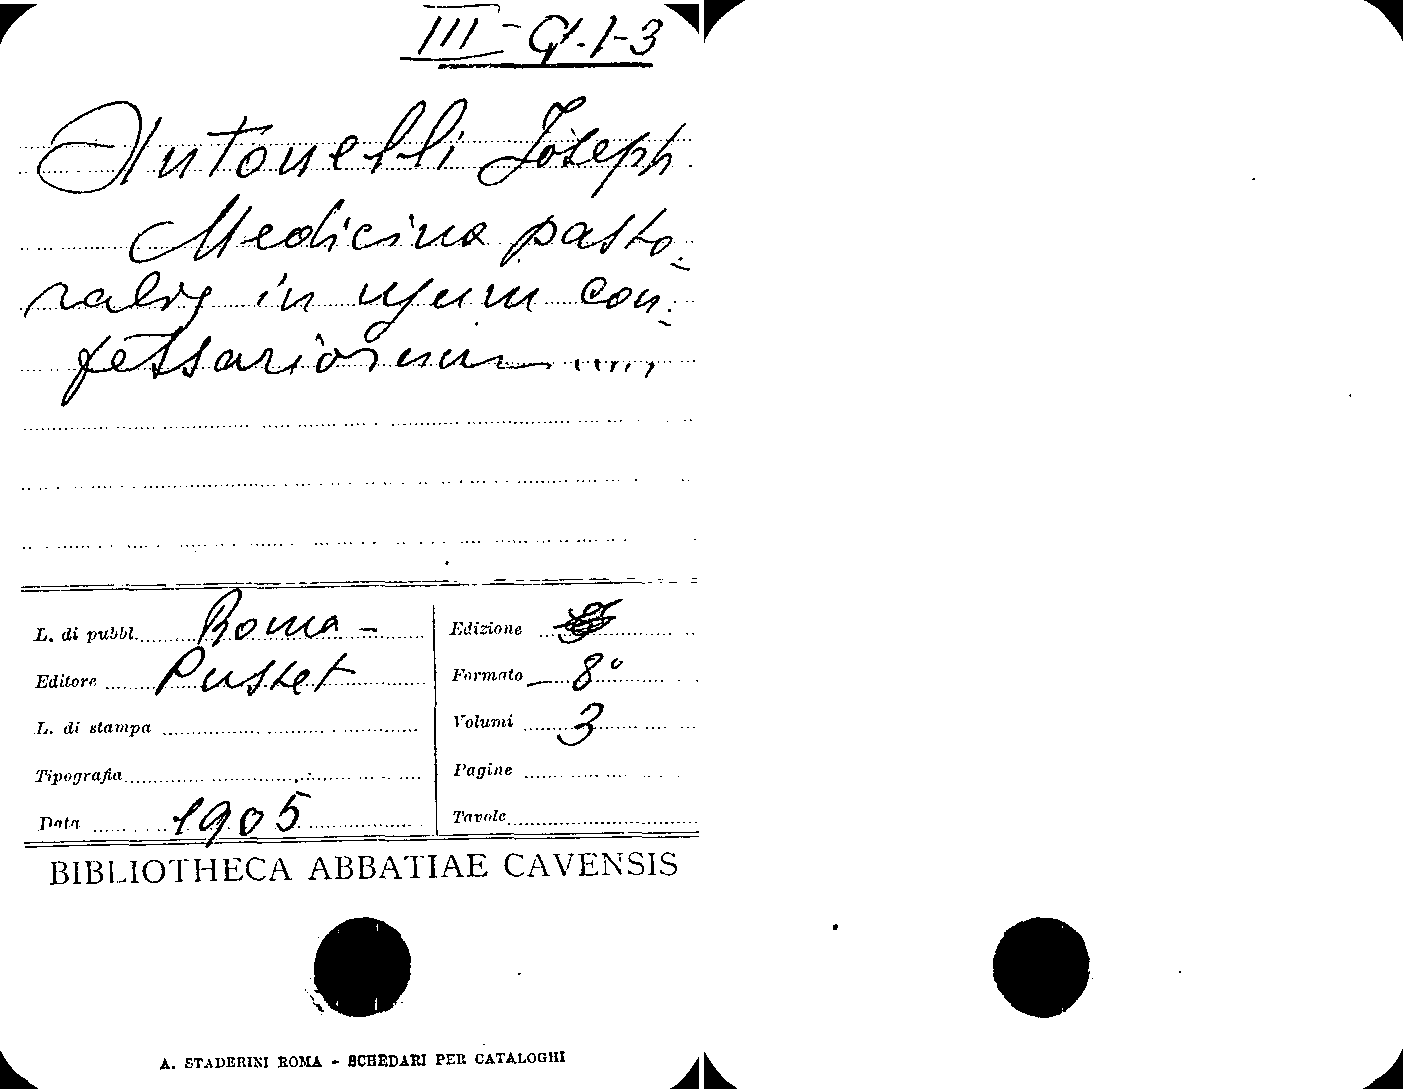 III - G. 1-3
Antonelli Joseph
Medicina pasto-
ralis in usum con-
fessariorum .....
L. di pubbl. Roma -
Editore Pustet
L. di stampa
Tipografia
Data 1905
Edizione
Formato 8°
Volumi 3
Pagine
Tavole
BIBLIOTHECA ABBATIAE CAVENSIS
A. STADERINI ROMA - SCHEDARI PER CATALOGHI